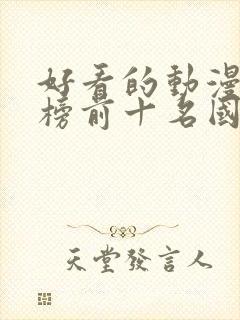 好看的動漫
榜前十名國
天堂發言人